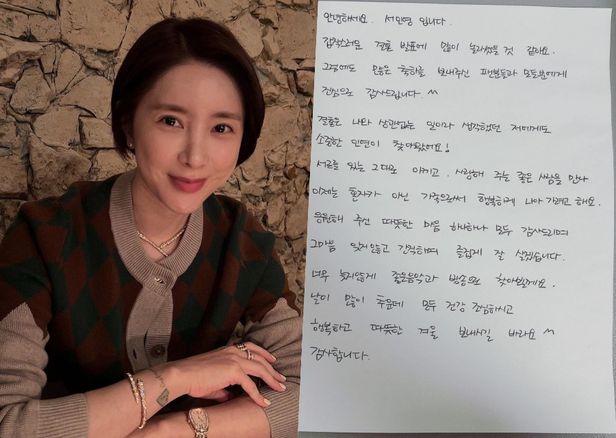 안녕하세요. 서인영 입니다.
갑작스러운 결혼 발표에 많이 놀라셨을 것 같아요.
그럼에도 많은 축하를 보내주신 팬분들과 모든분에게
진심으로 감사드립니다. ^^
결혼은 나와 상관없는 일이라 생각했던 저에게도
소중한 인연이 찾아왔어요!
서로를 있는 그대로 아끼고, 사랑해 주는 좋은 사람을 만나
이제는 혼자가 아닌 가족으로써 행복하게 나아가려고 해요.
응원해 주신 따뜻한 마음, 하나하나 모두 감사드리며
그마음 잊지않고 간직하며 즐겁게 잘 살겠습니다.
너무 늦지않게 좋은음악과 방송으로 찾아뵐게요.
날이 많이 추운데 모두 건강 조심하시고
행복하고 따뜻한 겨울 보내시길 바라요 ^^
감사합니다.